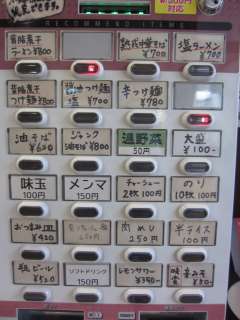 RECOMMEND ITEMS
背脂煮干
ラーメン¥800
熟成中華そば
¥700
塩ラーメン
¥700
背脂煮干
つけ麺¥800
醤油つけ麺
塩 ¥700
辛つけ麺
¥780
油そば
¥600
ジャンク
油そば¥800
温野菜
50円
大盛
¥100-
味玉
100円
メンマ
150円
チャーシュー
2枚100円
のり
10枚100円
おつまみ皿
¥400
肉めし
250円
半ライス
100円
瓶ビール
ソフトドリンク
150円
レモンサワー
¥350-